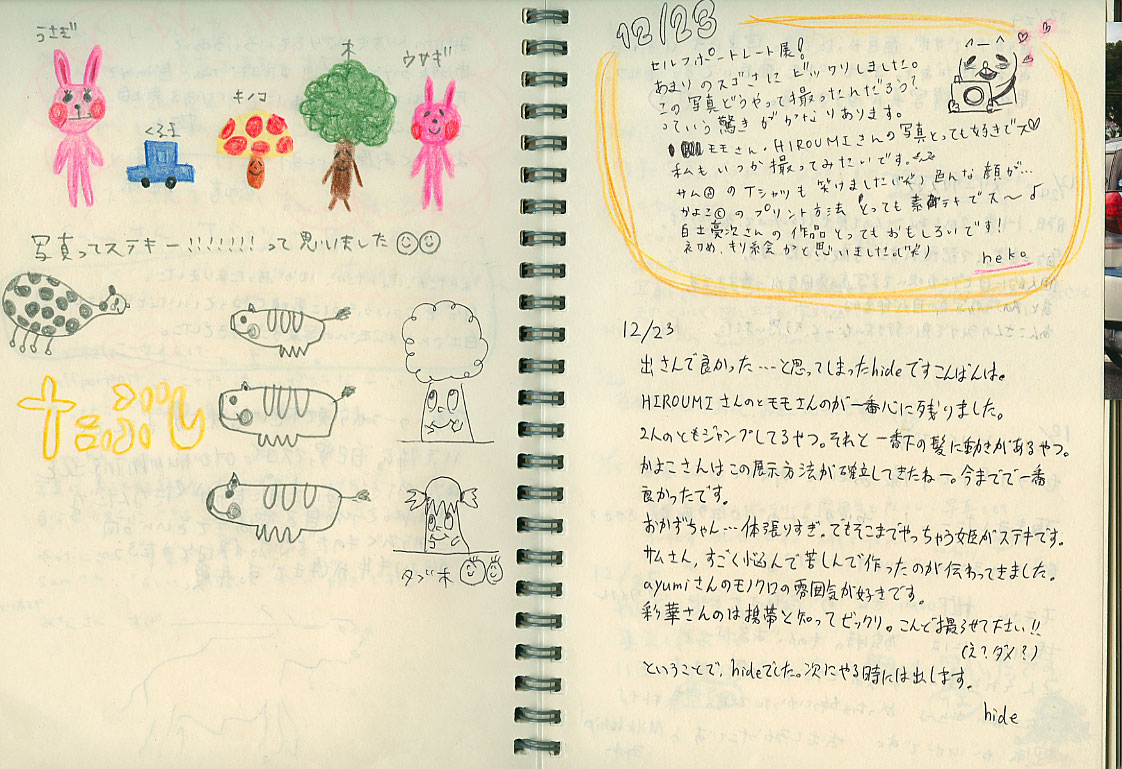 うさぎ
くるま
キノコ
木
ウサギ
写真ってステキー!!!!!!!って思いました
タブ木
12/23
セルフポートレート展!
あまりのスゴさにビックリしました。
この写真どうやって撮ったんだろうって
っていう驚きがかなりあります。
モモさん・HIROUMIさんの写真とっても好きでス♡
私もいつか撮ってみたいです。
サム のTシャツも笑けました(笑) 色んな顔が…
かよこ©のプリント方法 とっても素敵テキでス〜♪
白土亮次さんの作品とってもおもしろいです!!
初め、キリ絵かと思いました(笑)
neko
12/23
出さんで良かった…と思ってしまったhideですこんばんは。
HIROUMIさんのとモモさんのが一番心に残りました。
2人のともジャンプしてるやつ。それと一番下の髪に動きがあるやつ。
かよこさんはこの展示方法が確立してきたねー。今までで一番
良かったです。
おかずちゃん…体張りすぎ。でもそこまでやっちゃう姫がステキです。
サムさん、すごく悩んで苦しんで作ったのが伝わってきました。
ayumiさんのモノクロの雰囲気が好きです。
彩華さんのは携帯と知ってビックリ。こんど撮らせて下さい!!
(え?ダメ?)
ということで、hideでした。次にやる時には出します。
hide